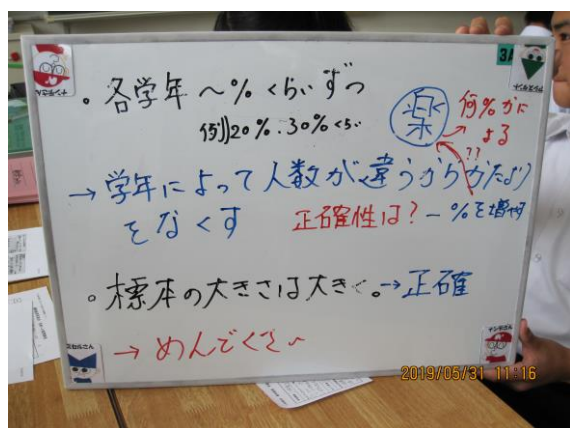 3A
。各学年〜%くらいずつ
例)20%.30%くらい
楽
→何%かに
よる
??
→学年によって人数が違うからかたより
をなくす
正確性は?-%を増やす
。標本の大きさは大きく。→正確
→めんでくさい
2019/05/31 11:16